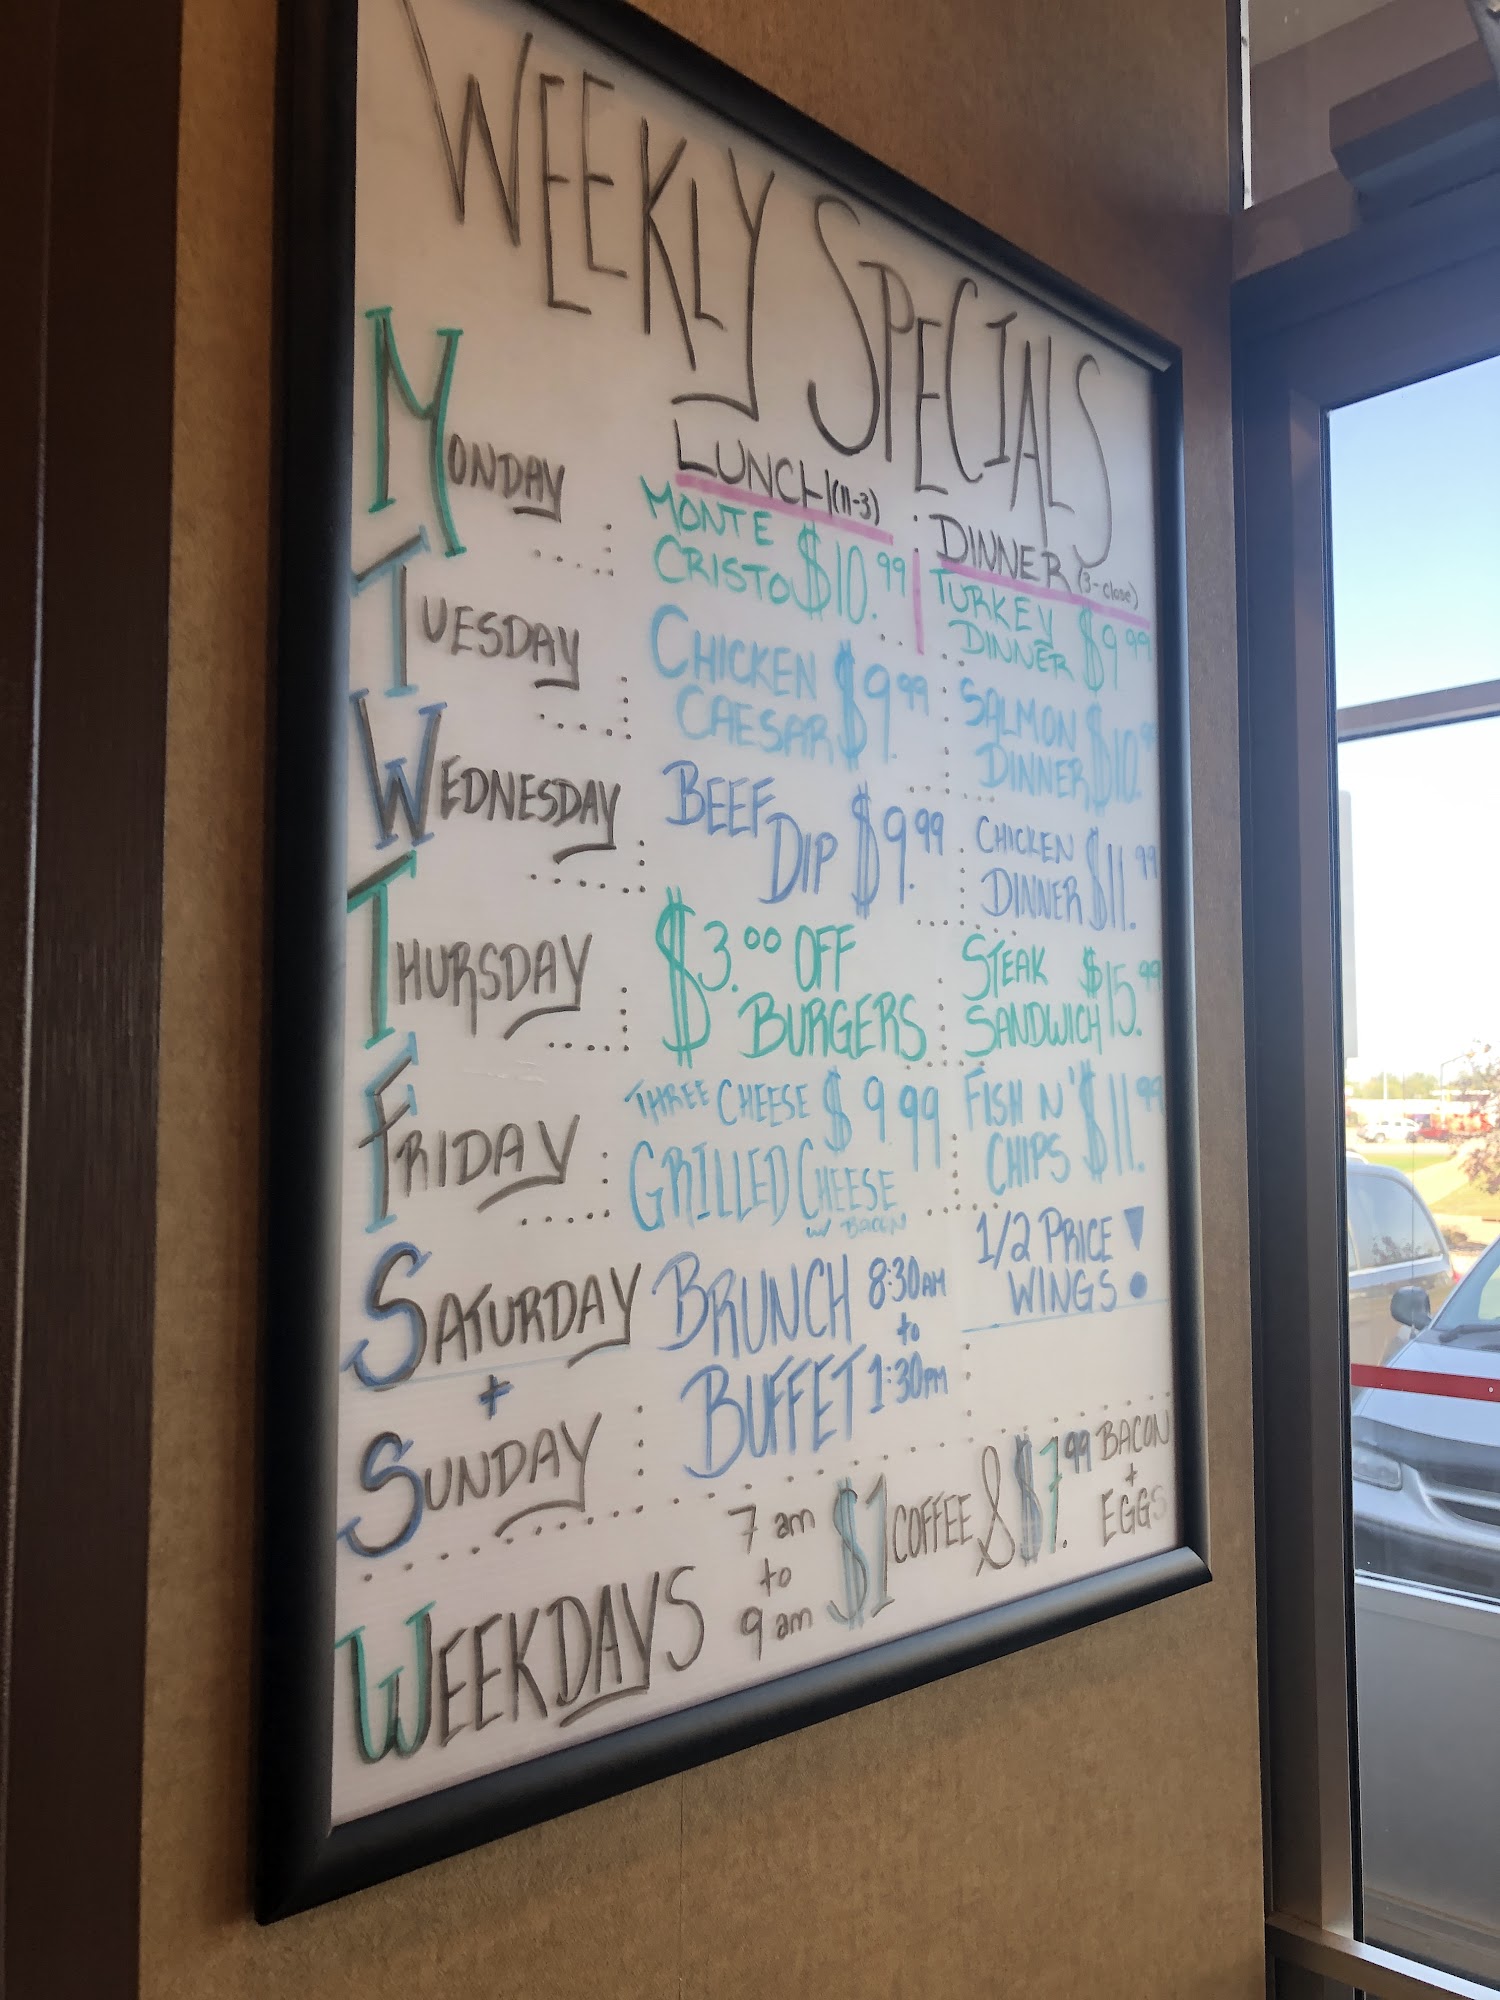 WEEKLY SPECIALS
LUNCH (11-3)
DINNER (3-close)
MONDAY
MONTE
CRISTO $10.99
TURKEY
DINNER $9.99
TUESDAY
CHICKEN
CAESAR $9.99
SALMON
DINNER $10.9
WEDNESDAY
BEEF
DIP $9.99
CHICKEN
DINNER $11.99
THURSDAY
$3.00 OFF
BURGERS
STEAK
SANDWICH $15.99
FRIDAY
THREE CHEESE $9.99
GRILLED CHEESE
w/ BACON
FISH N'
CHIPS $11.99
SATURDAY
+
SUNDAY
BRUNCH 8:30AM
to
BUFFET 1:30PM
1/2 PRICE
WINGS!
WEEKDAYS
7 am
to
9 am
$1 COFFEE & BACON
+
EGGS